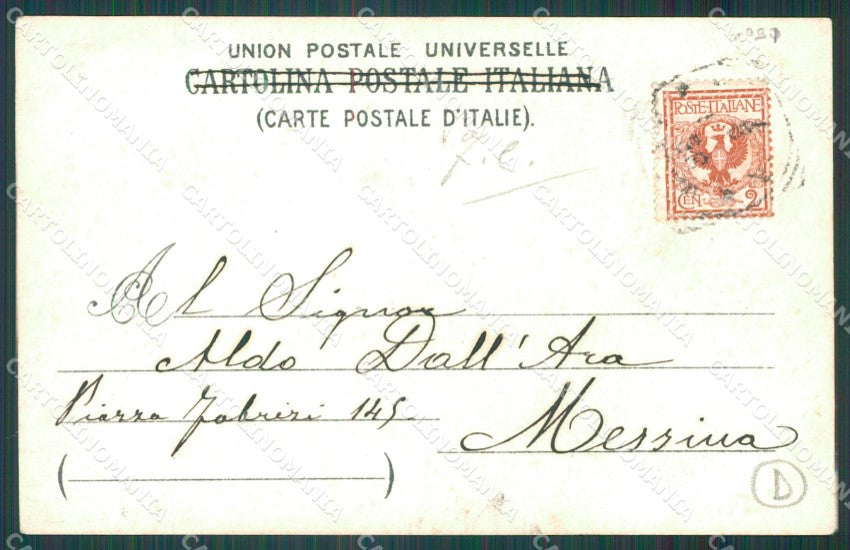 UNION POSTALE UNIVERSELLE
CARTOLINA POSTALE ITALIANA
(CARTE POSTALE D'ITALIE).
POSTE·ITALIANE
CEN. 2
Al Signor
Aldo Dall'Ara
Piazza Fabrizi 145
Messina
D
CARTOLINOMANIA